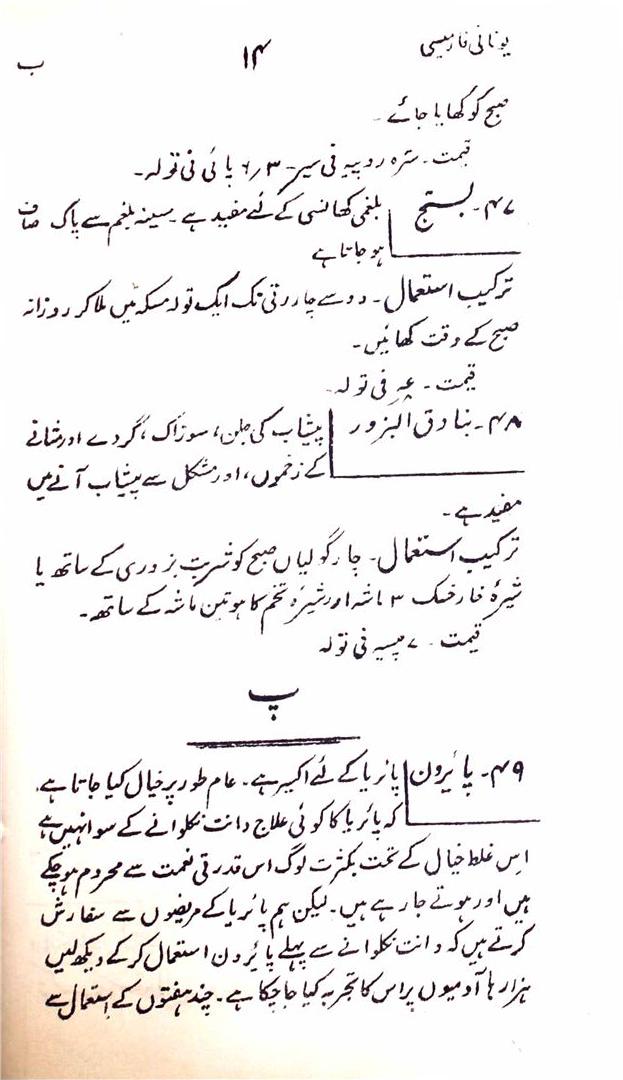 یونانی فارمیسی ۱۴ ب
صبح کو کھایا جائے۔
قیمت۔ سترہ روپیہ فی سیر۔ ۳؍۶ پائی فی تولہ۔
۴۷۔ بستج بلغمی کھانسی کے لئے مفید ہے۔ سینہ بلغم سے پاک صاف
ہو جاتا ہے
ترکیب استعمال۔ دو سے چار رتی تک ایک تولہ مسکہ میں ملا کر روزانہ
صبح کے وقت کھائیں۔
قیمت۔ فی تولہ۔
۴۸۔ بنادق البزور پیشاب کی جلن، سوزاک، گردے اور مثانے
کے زخموں، اور مشکل سے پیشاب آنے میں
مفید ہے۔
ترکیب استعمال۔ چار گولیاں صبح کو شربت بزوری کے ساتھ یا
شیرۂ خار خسک ۳ ماشہ اور شیرۂ تخم کاہو تین ماشہ کے ساتھ۔
قیمت۔ ۷ پیسہ فی تولہ
پ
۴۹۔ پائیرون پائریا کے لئے اکسیر ہے۔ عام طور پر خیال کیا جاتا ہے۔
کہ پائریا کا کوئی علاج دانت نکلوانے کے سوا نہیں ہے
اس غلط خیال کے تحت بکثرت لوگ اس قدرتی نعمت سے محروم ہو چکے
ہیں اور ہوتے جا رہے ہیں۔ لیکن ہم پائریا کے مریضوں سے سفارش
کرتے ہیں کہ دانت نکلوانے سے پہلے پائیرون استعمال کر کے دیکھ لیں
ہزارہا آدمیوں پر اس کا تجربہ کیا جا چکا ہے۔ چند ہفتوں کے استعمال سے